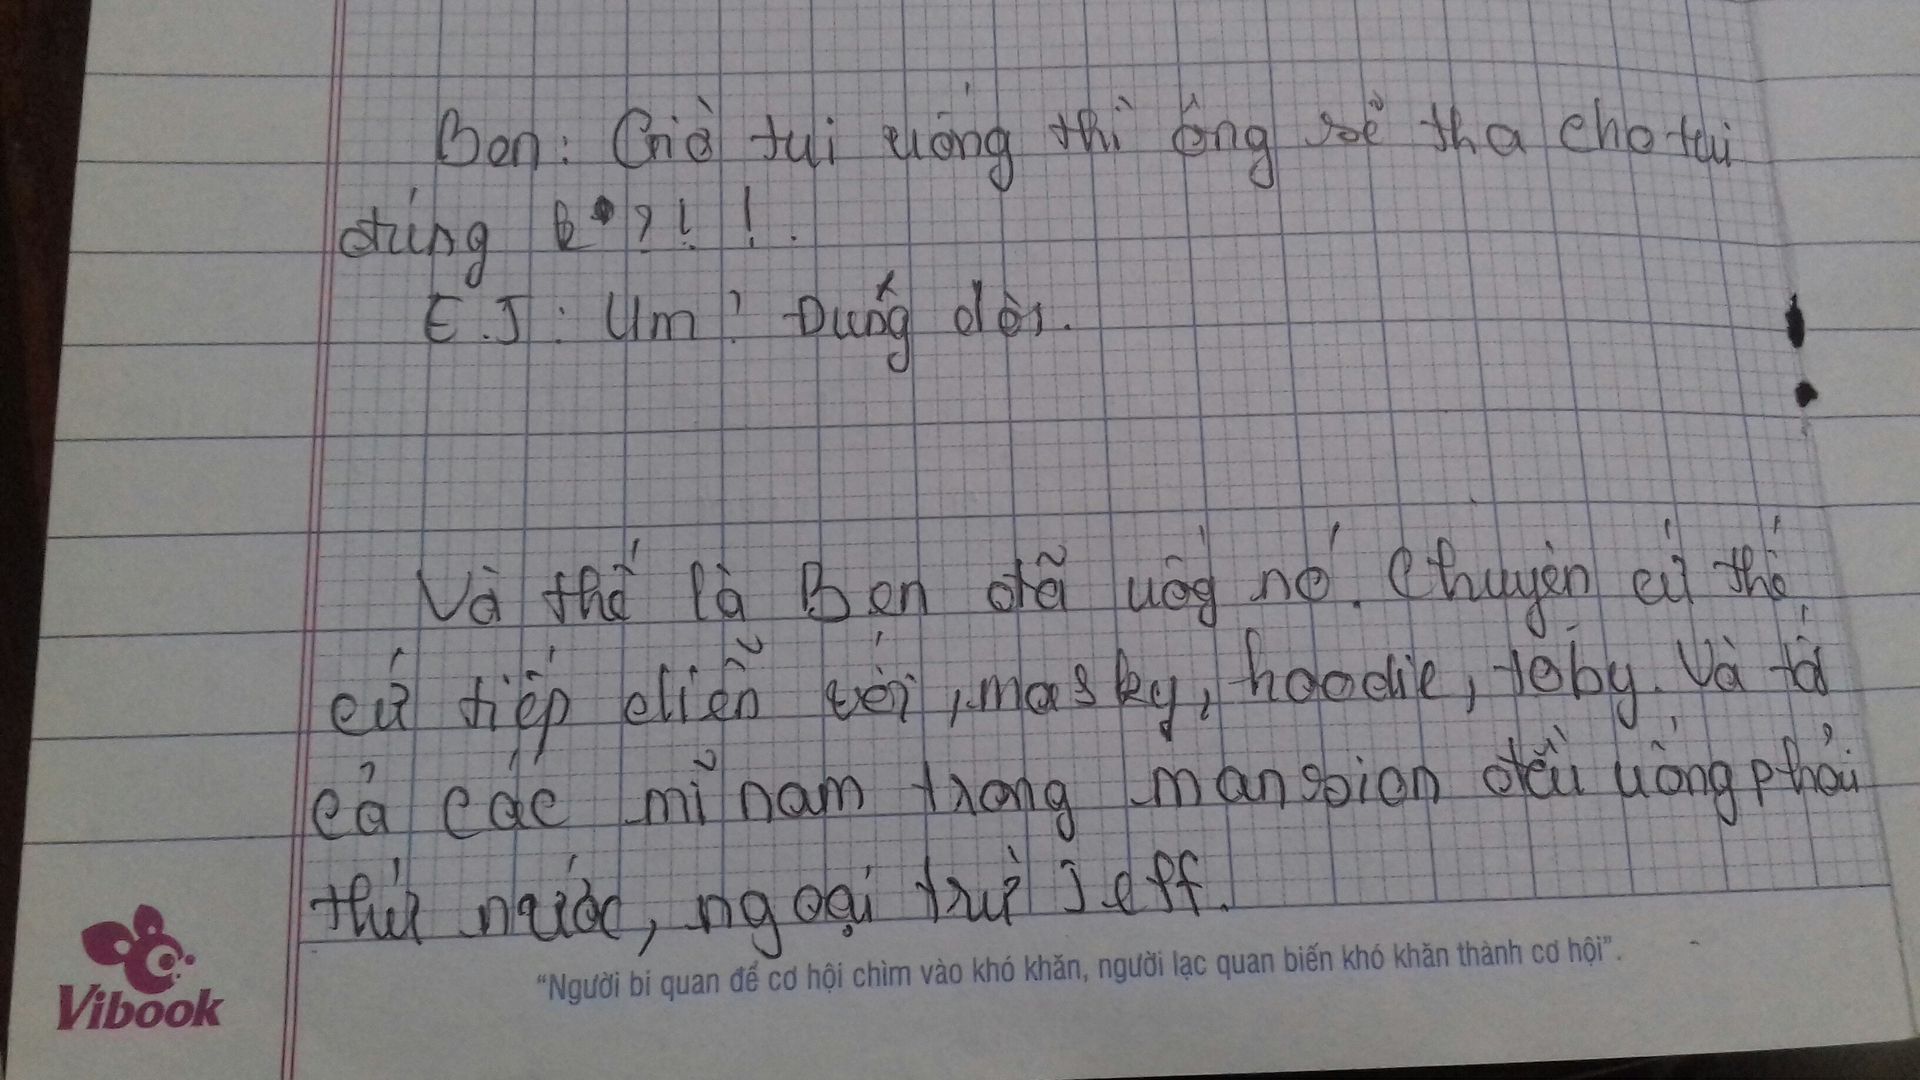 Ben: Giờ tui uống thì ông sẽ tha cho tui
đúng k ?!!.
E.J: Um! Đúng dòi.
Và thế là Ben đã uốg nó. Chuyện cứ thế
cứ tiếp diễn với, masky, hoodie, toby. Và tất
cả các mĩ nam trong mansion đều uống phải
thứ nước, ngoại trừ Jeff.
"Người bi quan để cơ hội chìm vào khó khăn, người lạc quan biến khó khăn thành cơ hội".
Vibook